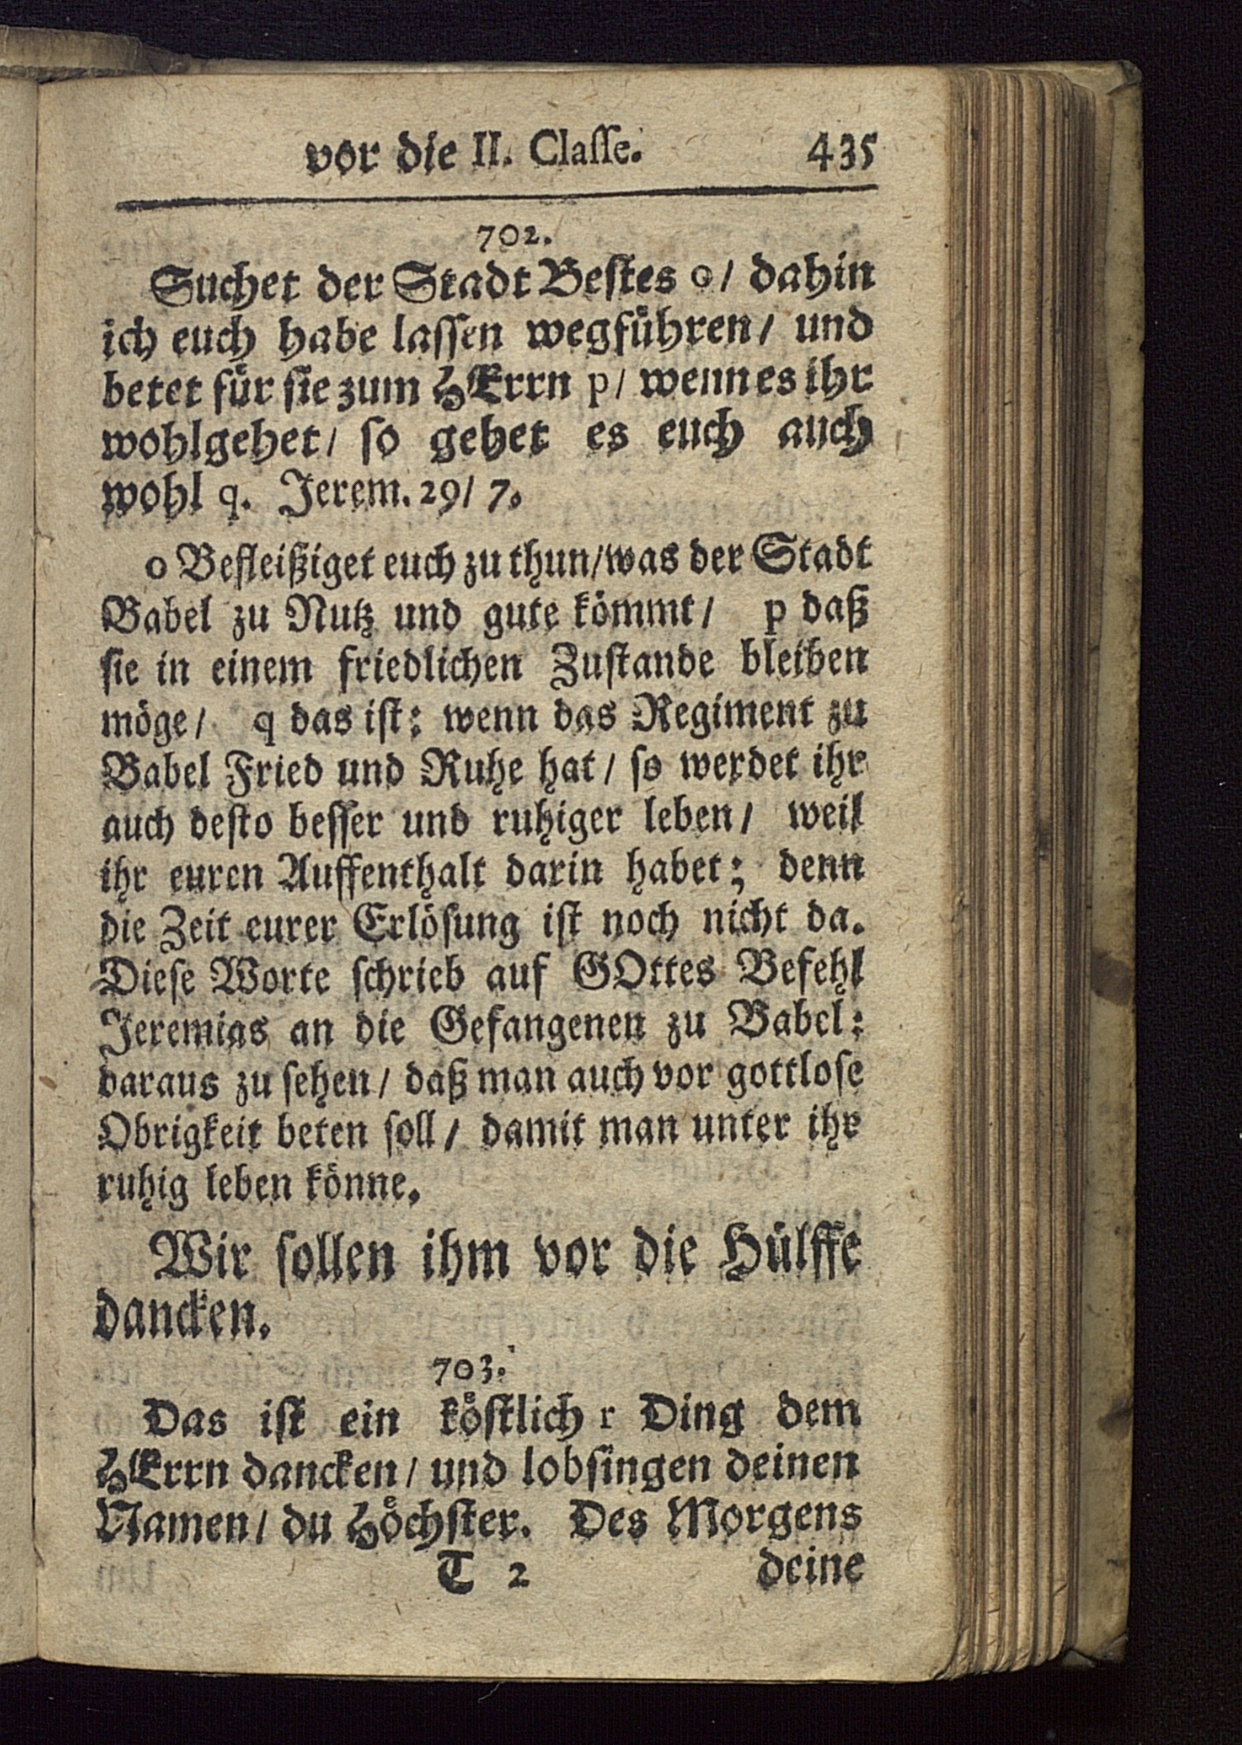 vor die II. Classe. 435
702.
Suchet der Stadt Bestes o/ dahin
ich euch habe lassen wegführen/ und
betet für sie zum HErrn p/ wenn es ihr
wohlgehet/ so gehet es euch auch
wohl q. Jerem. 29/ 7.
o Befleißiget euch zu thun/was der Stadt
Babel zu Nutz und gute kömmt/ p daß
sie in einem friedlichen Zustande bleiben
möge/ q das ist: wenn das Regiment zu
Babel Fried und Ruhe hat/ so werdet ihr
auch desto besser und ruhiger leben/ weil
ihr euren Auffenthalt darin habet; denn
die Zeit eurer Erlösung ist noch nicht da.
Diese Worte schrieb auf GOttes Befehl
Jeremias an die Gefangenen zu Babel:
daraus zu sehen/ daß man auch vor gottlose
Obrigkeit beten soll/ damit man unter ihr
ruhig leben könne.
Wir sollen ihm vor die Hülffe
dancken.
703.
Das ist ein köstlich r Ding dem
HErrn dancken/ und lobsingen deinen
Namen/ du Höchster. Des Morgens
T 2 deine